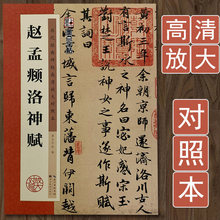 赵孟𫖯洛神赋
黄初三年余朝京師還濟洛川古人
有言斯水之神名曰宓妃感宋玉
神女之事遂作斯賦
其詞曰
言歸東藩背伊闕越
高清
放大
对照本